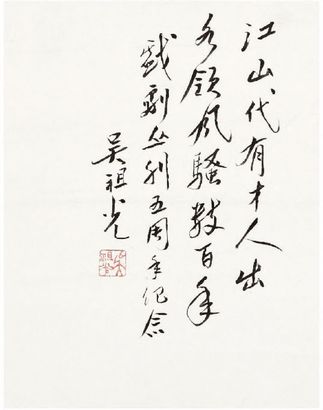 江山代有才人出
各领风骚数百年
戏剧丛刊五周年纪念
吴祖光